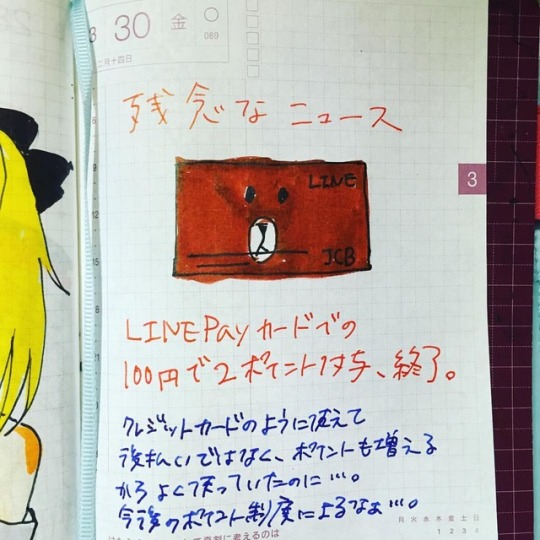 3 30 金
089
二月十四日
残念なニュース
LINE
JCB
3
LINE Payカードでの
100円で2ポイント付与、終了。
クレジットカードのように使えて
後払いではなく、ポイントも増える
からよく使っていたのに…。
今後のポイント制度によるなぁ…。
月火水木金土日
1 2 3 4
に考えるのは